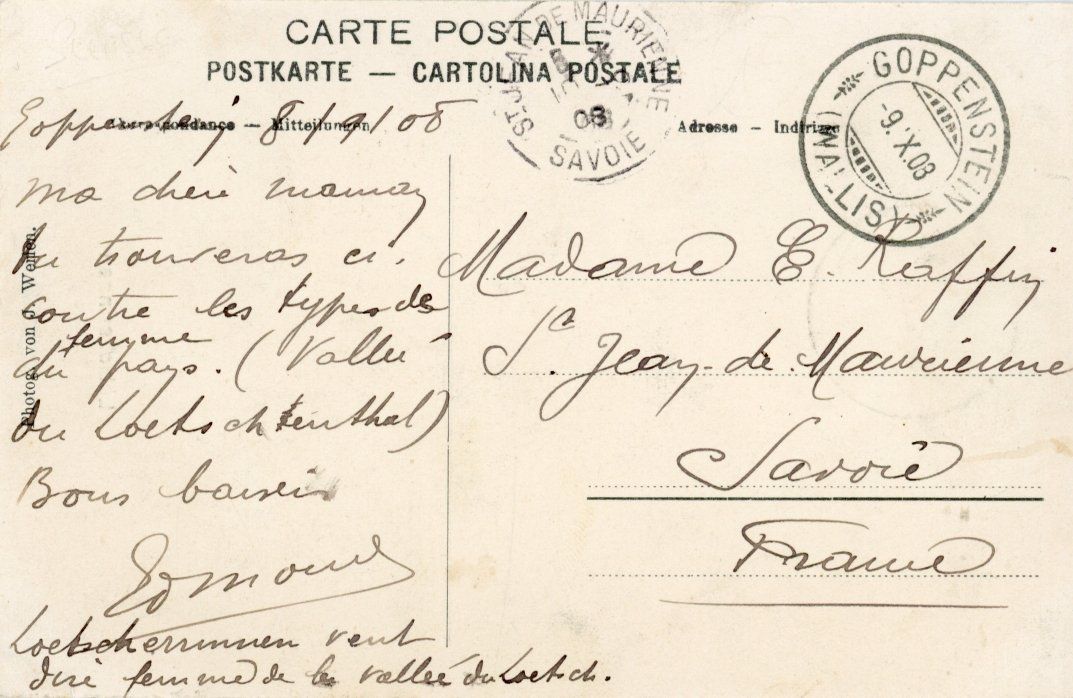 CARTE POSTALE
POSTKARTE — CARTOLINA POSTALE
Correspondance — Mitteilungen
Adresse — Indirizzo
ST JEAN DE MAURIENNE
08
SAVOIE
GOPPENSTEIN
-9.X.08
(WALLIS)
08
Ma chère maman
Tu trouveras ci.
contre les types de
femme
du pays. (Vallée
du Loetschenthal)
Bons baisers
Edmond
Loetscherinnen veut
dire femme de la vallée du Loetsch.
Photog. von J. Wehren.
Madame E. Raffin
St. Jean-de-Maurienne
Savoie
France